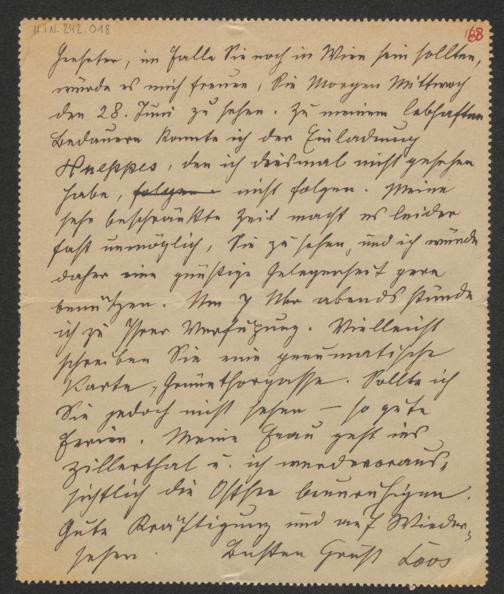 H.I.N. 242.018
168
Geehrter, im Falle Sie noch in Wien sein sollten,
würde es mich freuen, Sie Morgen Mittwoch
den 28. Juni zu sehen. Zu meinem lebhaften
Bedauern konnte ich der Einladung
Hneppes, den ich diesmal nicht gesehen
habe, folgen nicht folgen. Meine
sehr beschränkte Zeit macht es leider
fast unmöglich, Sie zu sehen, und ich würde
daher eine günstige Gelegenheit gern
benützen. Um 7 Uhr abends stünde
ich zu Ihrer Verfügung. Vielleicht
schreiben Sie eine pneumatische
Karte, Grünethorgasse. Sollte ich
Sie jedoch nicht sehen – so gute
Ferien. Meine Frau geht ins
Zillerthal u. ich werde voraus-
sichtlich die Ostsee beunruhigen.
Gute Kräftigung und auf Wieder-
sehen. Besten Gruß Loos